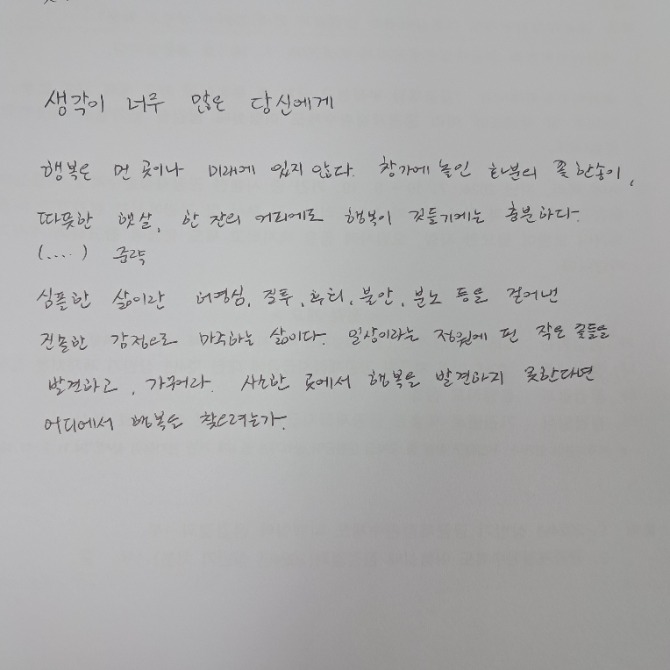 생각이 너무 많은 당신에게
행복은 먼 곳이나 미래에 있지 않다. 창가에 놓인 화분의 꽃 한송이,
따뜻한 햇살, 한 잔의 커피에도 행복이 깃들기에는 충분하다.
(....) 중략
심플한 삶이란 허영심, 질투, 후회, 불안, 분노 등을 걷어낸
진솔한 감정으로 마주하는 삶이다. 일상이라는 정원에 핀 작은 꽃들을
발견하고, 가꾸어라. 사소한 곳에서 행복을 발견하지 못한다면
어디에서 행복을 찾으려는가.